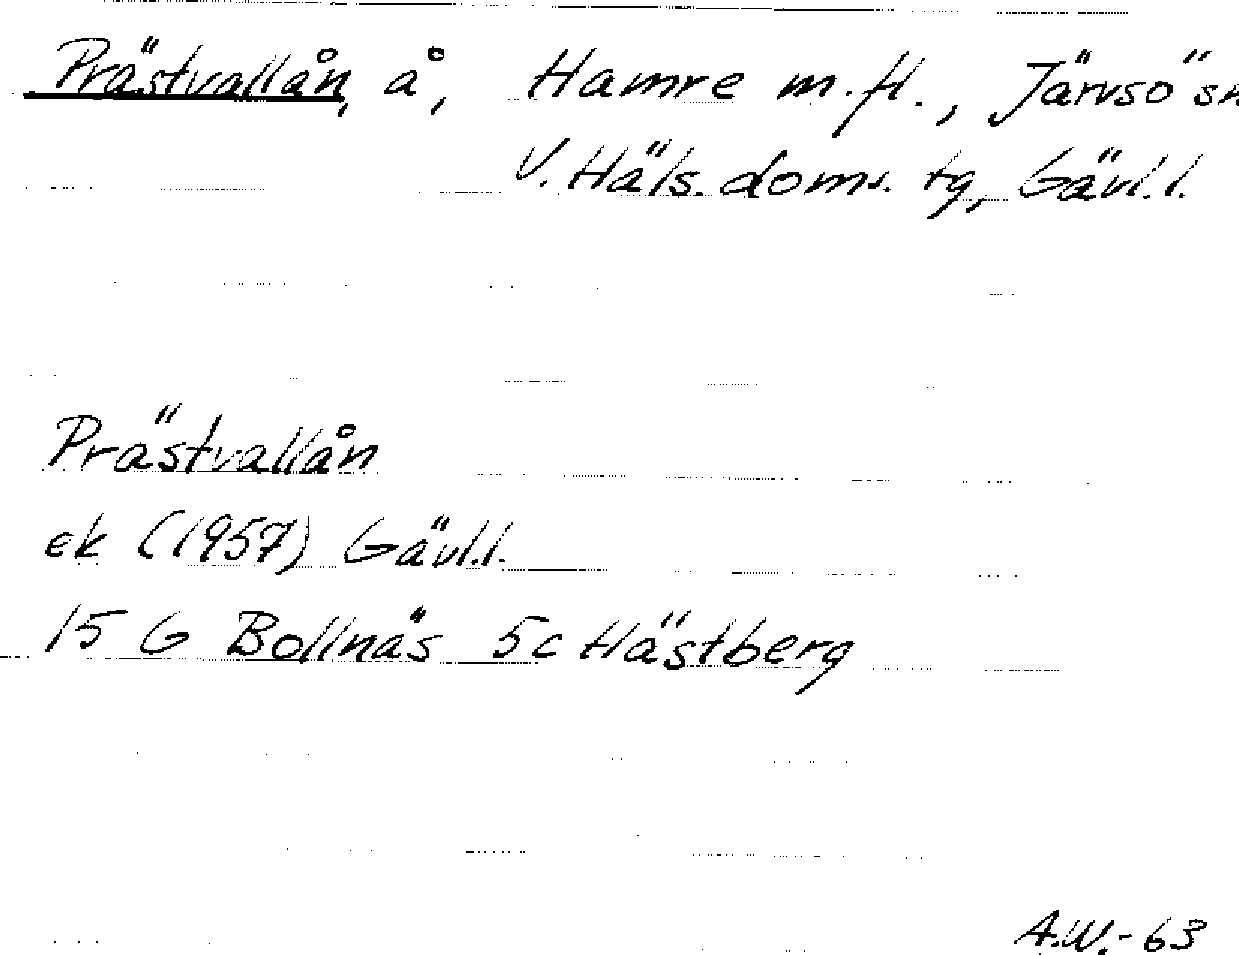 Prästvallån, å, Hamre m.fl., Järvsö sn
V. Häls. doms. tg, Gävl.l.
Prästvallån
ek (1957) Gävl.l.
15 G Bollnäs 5c Hästberg
A.W.-63